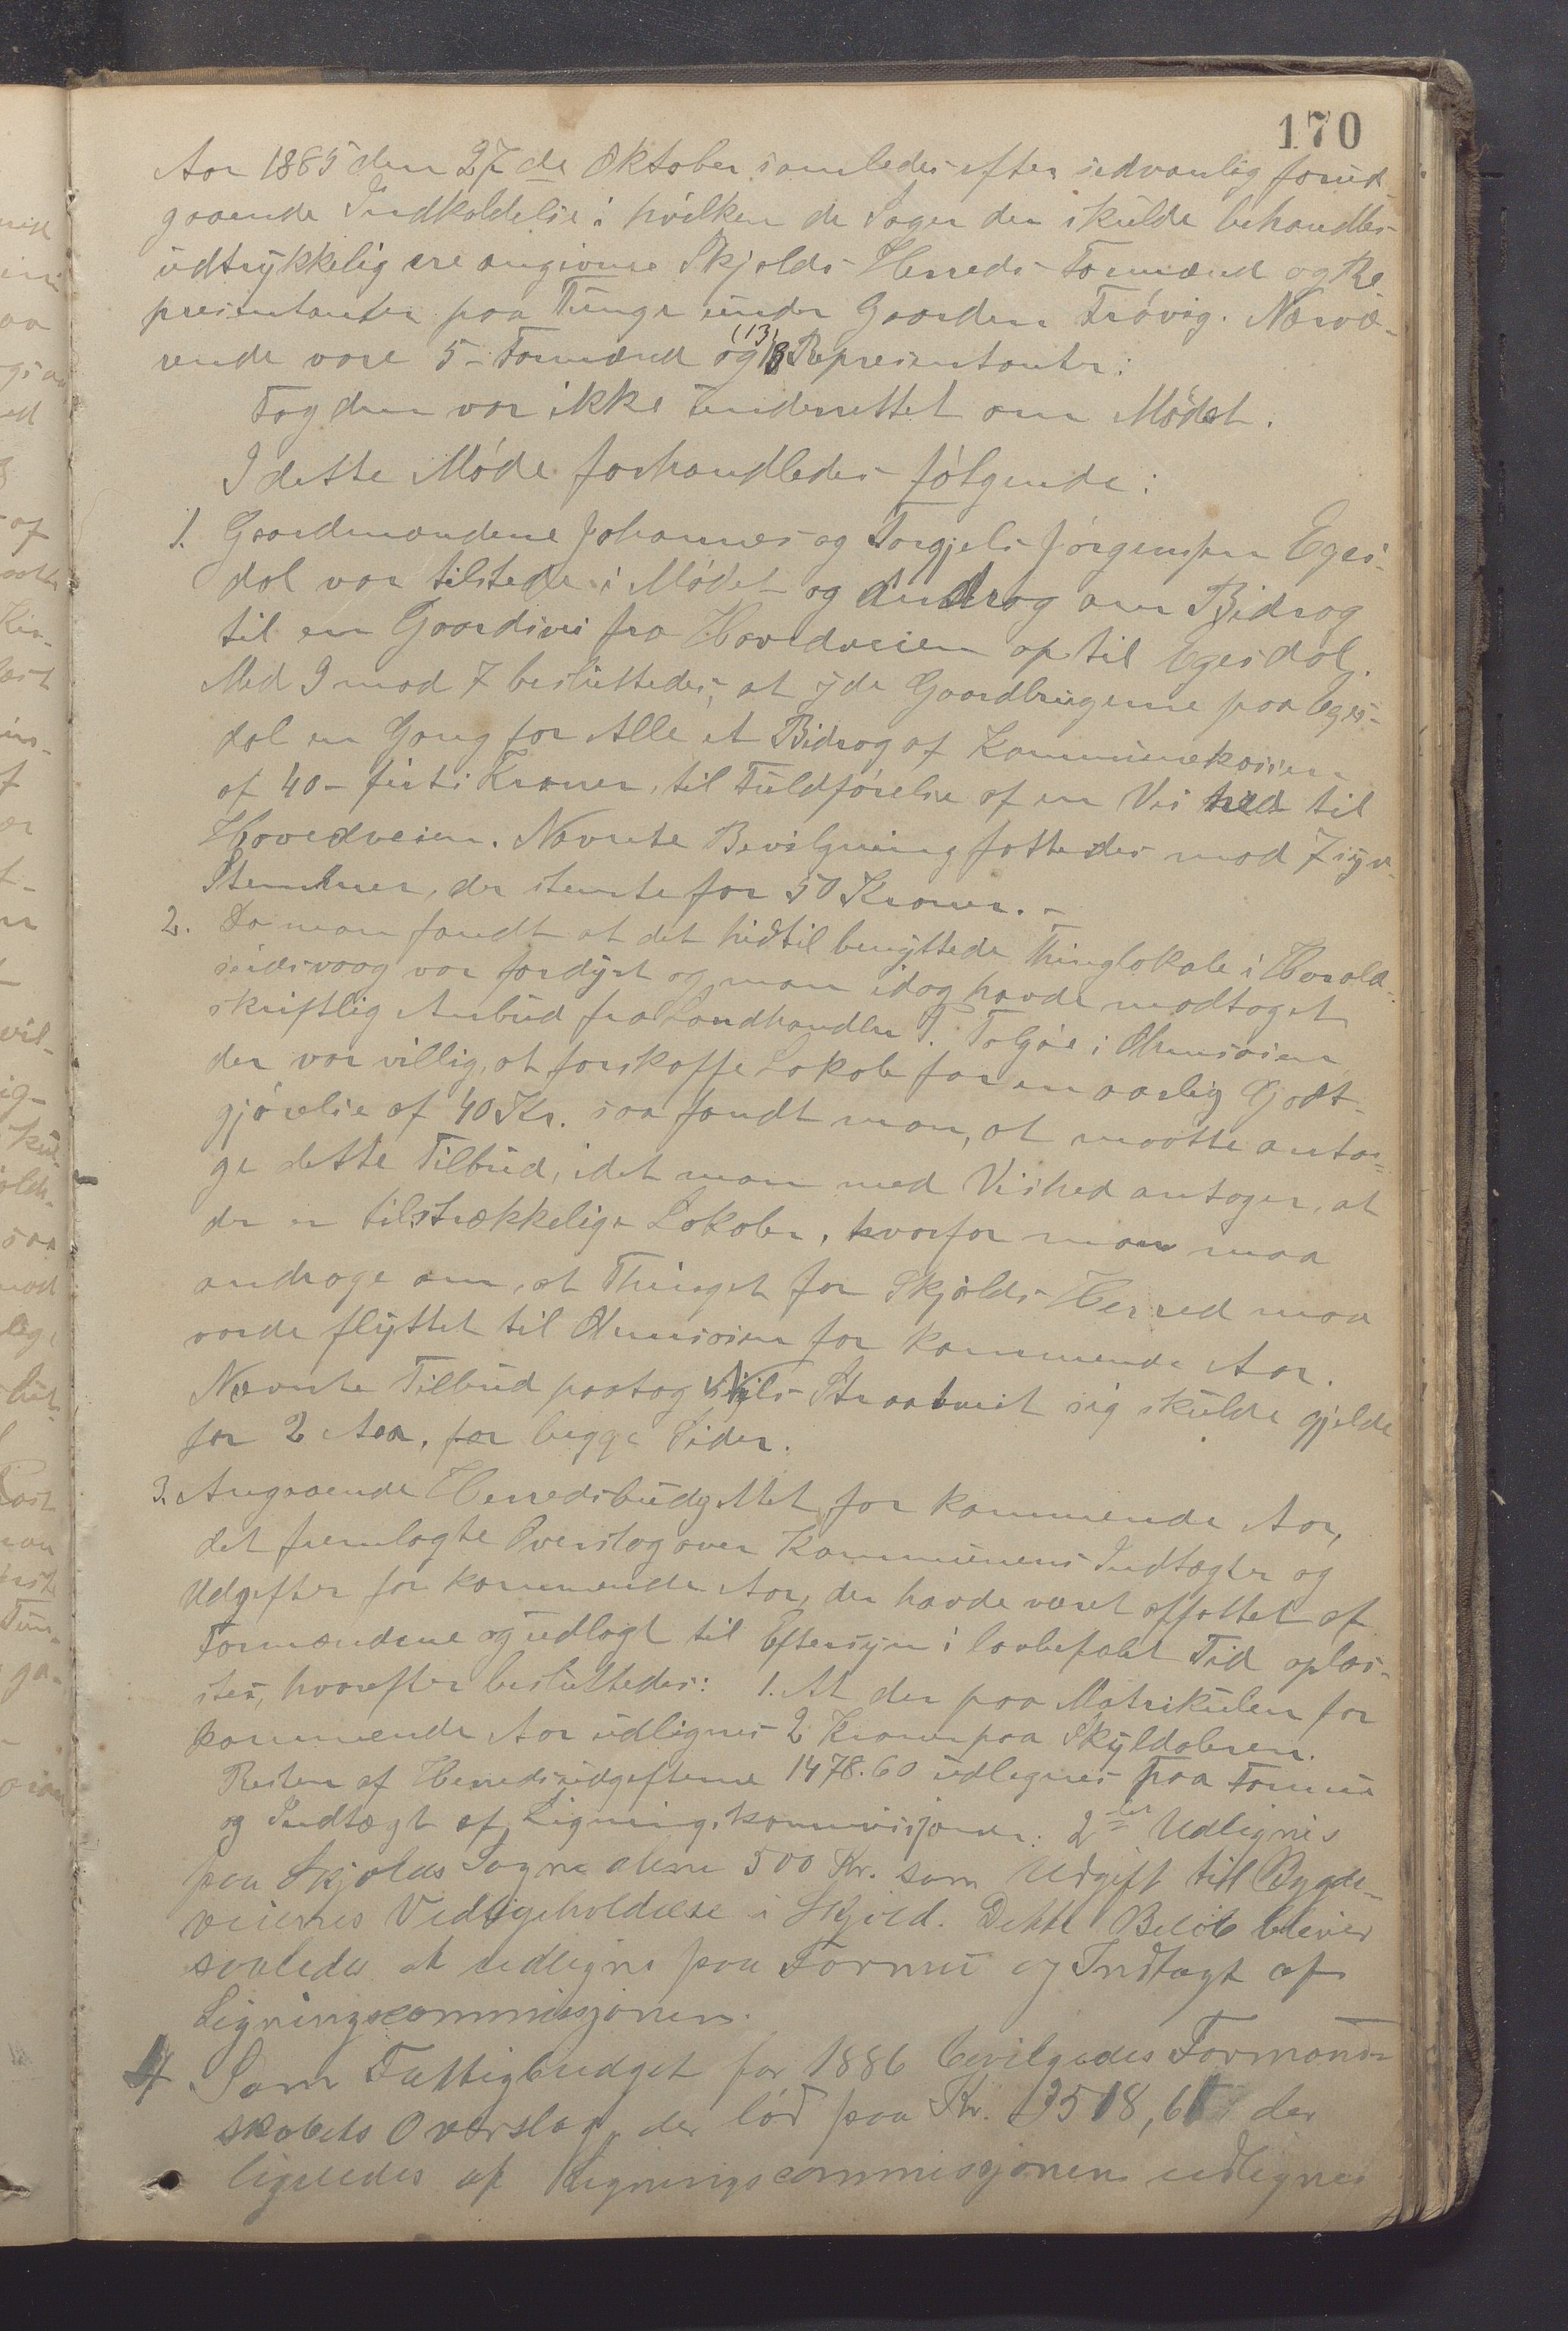 170
Aar 1885 den 27de Oktober samledes efter sedvanlig forud-
gaaende Indkaldelse i hvilken de Sager der skulde behandles
udtrykkelig ere angivne Skjolds Herreds Formænd og Re-
presentanter paa Tunge under Gaarden Frøvig. Nærvæ-
rende vare 5 Formænd og (13) Representanter:
Fogden var ikke underrettet om Mødet.
I dette Møde forhandledes følgende:
1. Gaardmændene Johannes og Torgjels Jørgensen Eges-
dal var tilstede i Mødet og androg om Bidrag
til en Gaardsvei fra Hovedveien op til Egesdal.
Med 9 mod 7 besluttedes, at yde Gaardbrugerne paa Eges-
dal en Gang for Alle et Bidrag af Kommunekassen
af 40 - firti Kroner, til Fuldførelse af en Vei ned til
Hovedveien. Nævnte Bevilgning fattedes mod 7 syv
Stemmer, der stemte for 50 Kroner. -
2. Da man fandt at det hidtil benyttede Thinglokale i Harald-
seidsvaag var fordyrt og man idag havde modtaget
skriftlig Anbud fra Landhandler T. i Ølensøen
der var villig, at forskaffe Lokale for en aarlig Godt-
gjørelse af 40 Kr. saa fandt man, at maatte anta-
ge dette Tilbud, idet man med Vished antager, at
der er tilstrækkelige Lokaler, hvorfor man maa
andrage om, at Thinget for Skjolds Herred maa
vorde flyttet til Ølensøen for kommende Aar.
Nævnte Tilbud paatog Nils Straatveit sig skulde gjelde
for 2 Aar, for begge Sider.
3. Angaaende Herredsbudgettet for kommende Aar,
det fremlagte Overslag over Kommunens Indtægter og
Udgifter for kommende Aar, der havde været affattet af
Formændene og udlagt til Eftersyn i lovbefalet Tid oplæs-
tes, hvorefter besluttedes: 1. At der paa Matrikulen for
kommende Aar udlignes 2 Kroner paa Skylddaleren.
Resten af Herredsudgifterne 1478.60 udlignes paa Formue
og Indtægt af Ligningskommisjonen: 2det Udlignes
paa Skjolds Sogn alene 500 Kr. som Udgift till Bygde-
veienes Vedligeholdelse i Skjold. Dette Beløb bliver
saaledes at udligne paa Formue og Indtægt af
Ligningscommissjonen.
4 Som Fattigbudget for 1886 bevilgedes Formand-
skabets Overslag, der lød paa Kr. 3518,61 der
ligeledes af Ligningscommissjonen udlignes